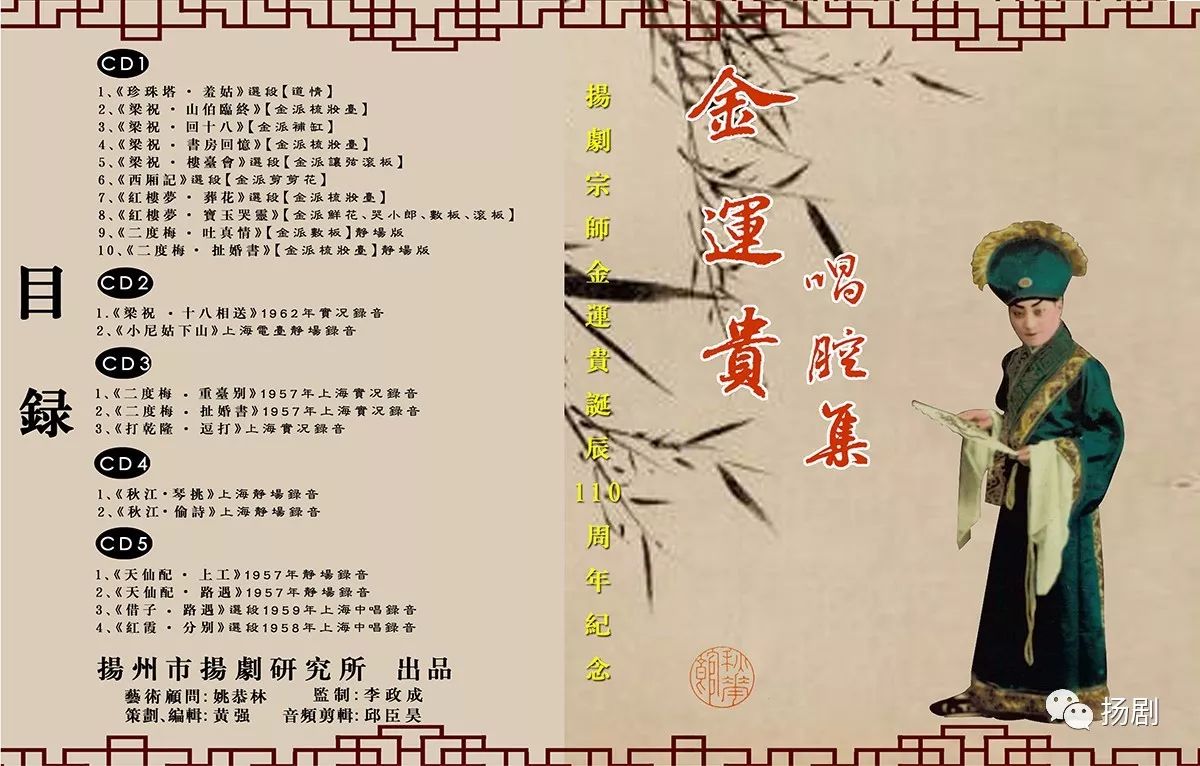 目録
CD1
1、《珍珠塔·羞姑》選段【道情】
2、《梁祝·山伯臨終》【金派梳妝臺】
3、《梁祝·回十八》【金派補缸】
4、《梁祝·書房回憶》【金派梳妝臺】
5、《梁祝·樓臺會》選段【金派讓弦滾板】
6、《西厢記》選段【金派剪剪花】
7、《紅樓夢·葬花》選段【金派梳妝臺】
8、《紅樓夢·寶玉哭靈》【金派鮮花、哭小郎、數板、滾板】
9、《二度梅·吐真情》【金派數板】靜場版
10、《二度梅·扯婚書》【金派梳妝臺】靜場版
CD2
1.《梁祝·十八相送》1962年實况録音
2、《小尼姑下山》上海電臺靜場録音
CD3
1、《二度梅·重臺別》1957年上海實况録音
2、《二度梅·扯婚書》1957年上海實况録音
3、《打乾隆·逗打》上海實况録音
CD4
1、《秋江·琴挑》上海靜場録音
2、《秋江·偷詩》上海靜場録音
CD5
1、《天仙配·上工》1957年靜場録音
2、《天仙配·路遇》1957年靜場録音
3、《借子·路遇》選段1959年上海中唱録音
4、《紅霞·分別》選段1958年上海中唱録音
揚州市揚劇研究所 出品
藝術顧問:姚恭林 監制:李政成
策劃、編輯:黃强 音頻剪輯:邱臣昊
揚劇宗師金運貴誕辰110周年紀念
金運貴
唱腔集
扬剧